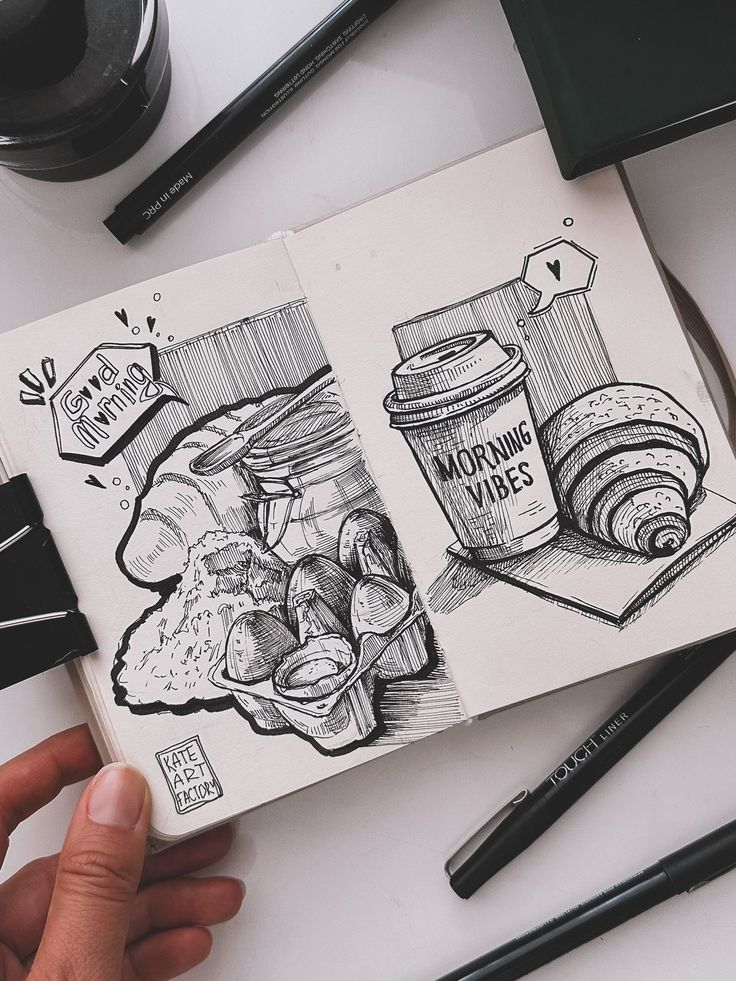 Good
Morning
MORNING
VIBES
KATE
ART
FACTORY
Made in PRC
TOUCH LINER